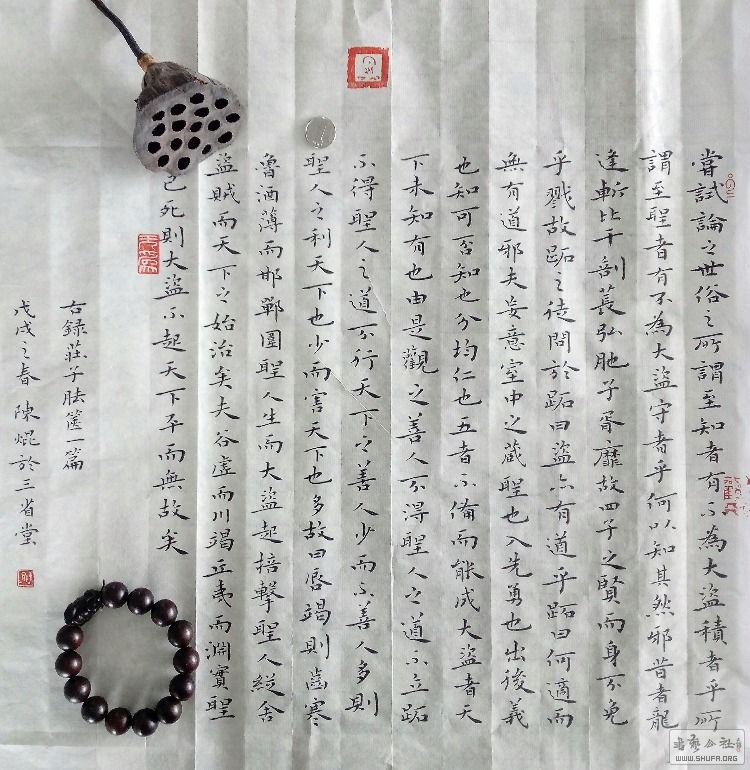 嘗試論之世俗之所謂至知者有不為大盜積者乎所
謂至聖者有不為大盜守者乎何以知其然邪昔者龍
逢斬比干剖萇弘胣子胥靡故四子之賢而身不免
乎戮故跖之徒問於跖曰盜亦有道乎跖曰何適而
無有道邪夫妄意室中之藏聖也入先勇也出後義
也知可否知也分均仁也五者不備而能成大盜者天
下未知有也由是觀之善人不得聖人之道不立跖
不得聖人之道不行天下之善人少而不善人多則
聖人之利天下也少而害天下也多故曰唇竭則齒寒
魯酒薄而邯鄲圍聖人生而大盜起掊擊聖人縱舍
盜賊而天下之始治矣夫谷虛而川竭丘夷而淵實聖
已死則大盜不起天下平而無故矣
右錄莊子胠篋一篇
戊戌之春 陳焜於三省堂
书艺公社
WWW.SHUFA.ORG